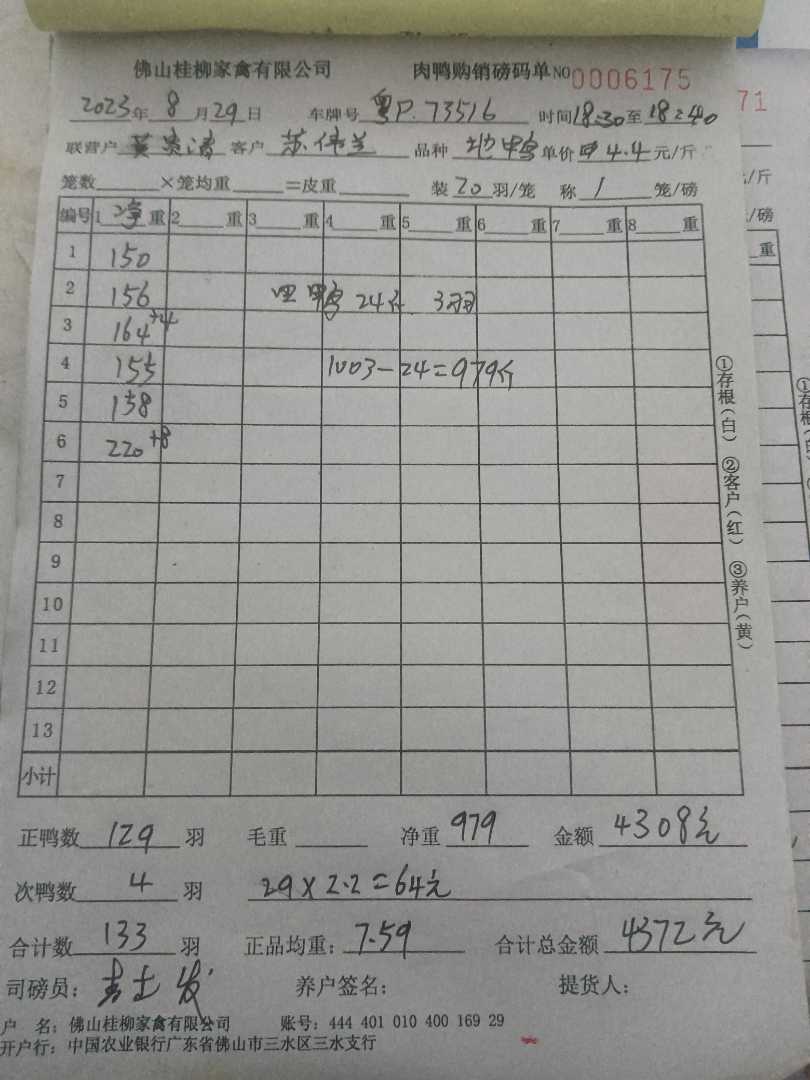 佛山桂柳家禽有限公司 肉鸭购销磅码单 NO 0006175
2023年 8月29日 车牌号 粤P.73516 时间18:30至18:40
联营户 客户 苏伟兰 品种 地鸭 单价 4.4 元/斤
笼数 ×笼均重 =皮重 装 20 羽/笼 称 1 笼/磅
编号 1 净 重 2 重 3 重 4 重 5 重 6 重 7 重 8 重
1 150
2 156 鸭 24斤 3羽
3 164+4
4 155 1003-24=979斤
5 158
6 220+8
7
8
9
10
11
12
13
小计
正鸭数 129 羽 毛重 净重 979 金额 4308元
次鸭数 4 羽 29×2.2=64元
合计数 133 羽 正品均重: 7.59 合计总金额 4372元
司磅员: 养户签名: 提货人:
户 名: 佛山桂柳家禽有限公司 账号: 444 401 010 400 169 29
开户行: 中国农业银行广东省佛山市三水区三水支行
①存根(白) ②客户(红) ③养户(黄)
71
/斤
/磅
重